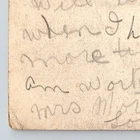 will
when I h
more ti
am wort
Mrs Mor